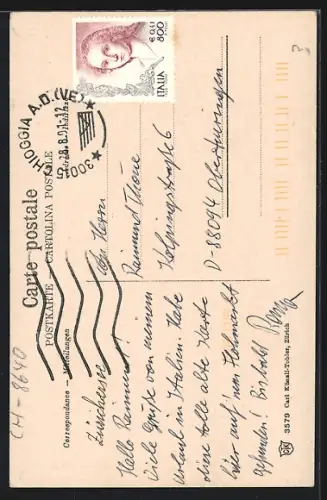 Carte postale
POSTKARTE — CARTOLINA POSTALE
Correspondance — Mitteilungen
CHIOGGIA A.D. (VE)
30015
ITALIA
800
€ 0,41
Hallo Raimund!
Viele Grüße von meinem
Urlaub in Italien. Habe
ohne tolle alte Karte
hier auf'nem Flohmarkt
gefunden! Bis bald
Herrn
Raimund
Kolpingstraße 6
D-88094 Oberteuringen
3579 Carl Künzli-Tobler, Zürich
CH-8640